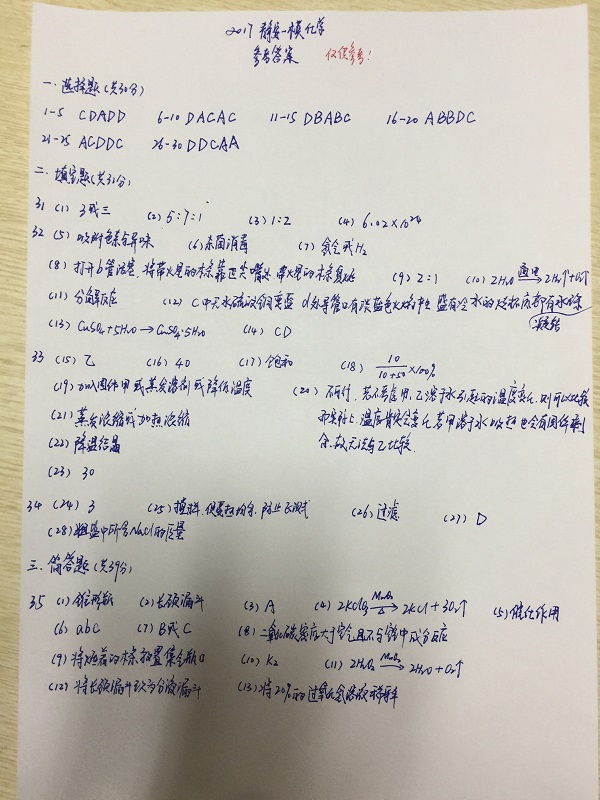 2017 静安一模化学
参考答案 仅供参考!
一.选择题(共30分)
1-5 CDADD 6-10 DACAC 11-15 DBABC 16-20 ABBDC
21-25 ACDDC 26-30 DDCAA
二.填空题(共31分)
31 (1) 3或三 (2) 5:7:1 (3) 1:2 (4) 6.02×10²⁴
32 (5) 吸附色素与异味 (6) 杀菌消毒 (7) 氢气或H₂
(8) 打开b管活塞,将带火星的木条靠近尖嘴处,带火星的木条复燃 (9) 2:1 (10) 2H₂O 通电→ 2H₂↑+O₂↑
(11) 分解反应 (12) C中无水硫酸铜变蓝 d处导管口有淡蓝色火焰产生 盛有冷水的烧杯底部有水珠
凝结
(13) CuSO₄+5H₂O→CuSO₄·5H₂O (14) CD
33 (15) 乙 (16) 40 (17) 饱和 (18) 10/(10+50)×100%
(19) 加入固体甲或蒸发溶剂或降低温度 (20) 不可行,若不考虑甲、乙溶于水引起的温度变化,则可以比较
(21) 蒸发浓缩或加热浓缩 而实际上,温度肯定会变化,若甲溶于水吸热也会有固体剩
(22) 降温结晶 余,故无法与乙比较.
(23) 30
34 (24) 3 (25) 搅拌,使受热均匀,防止飞溅 (26) 过滤 (27) D
(28) 粗盐中所含NaCl的质量
三.简答题(共39分)
35 (1) 锥形瓶 (2) 长颈漏斗 (3) A (4) 2KClO₃ MnO₂△→ 2KCl+3O₂↑ (5) 催化作用
(6) abc (7) B或C (8) 二氧化碳密度大于空气且不与空气中成分反应
(9) 将燃着的木条放置集气瓶口 (10) K₂ (11) 2H₂O₂ MnO₂→ 2H₂O+O₂↑
(12) 将长颈漏斗改为分液漏斗 (13) 将20%的过氧化氢溶液稀释